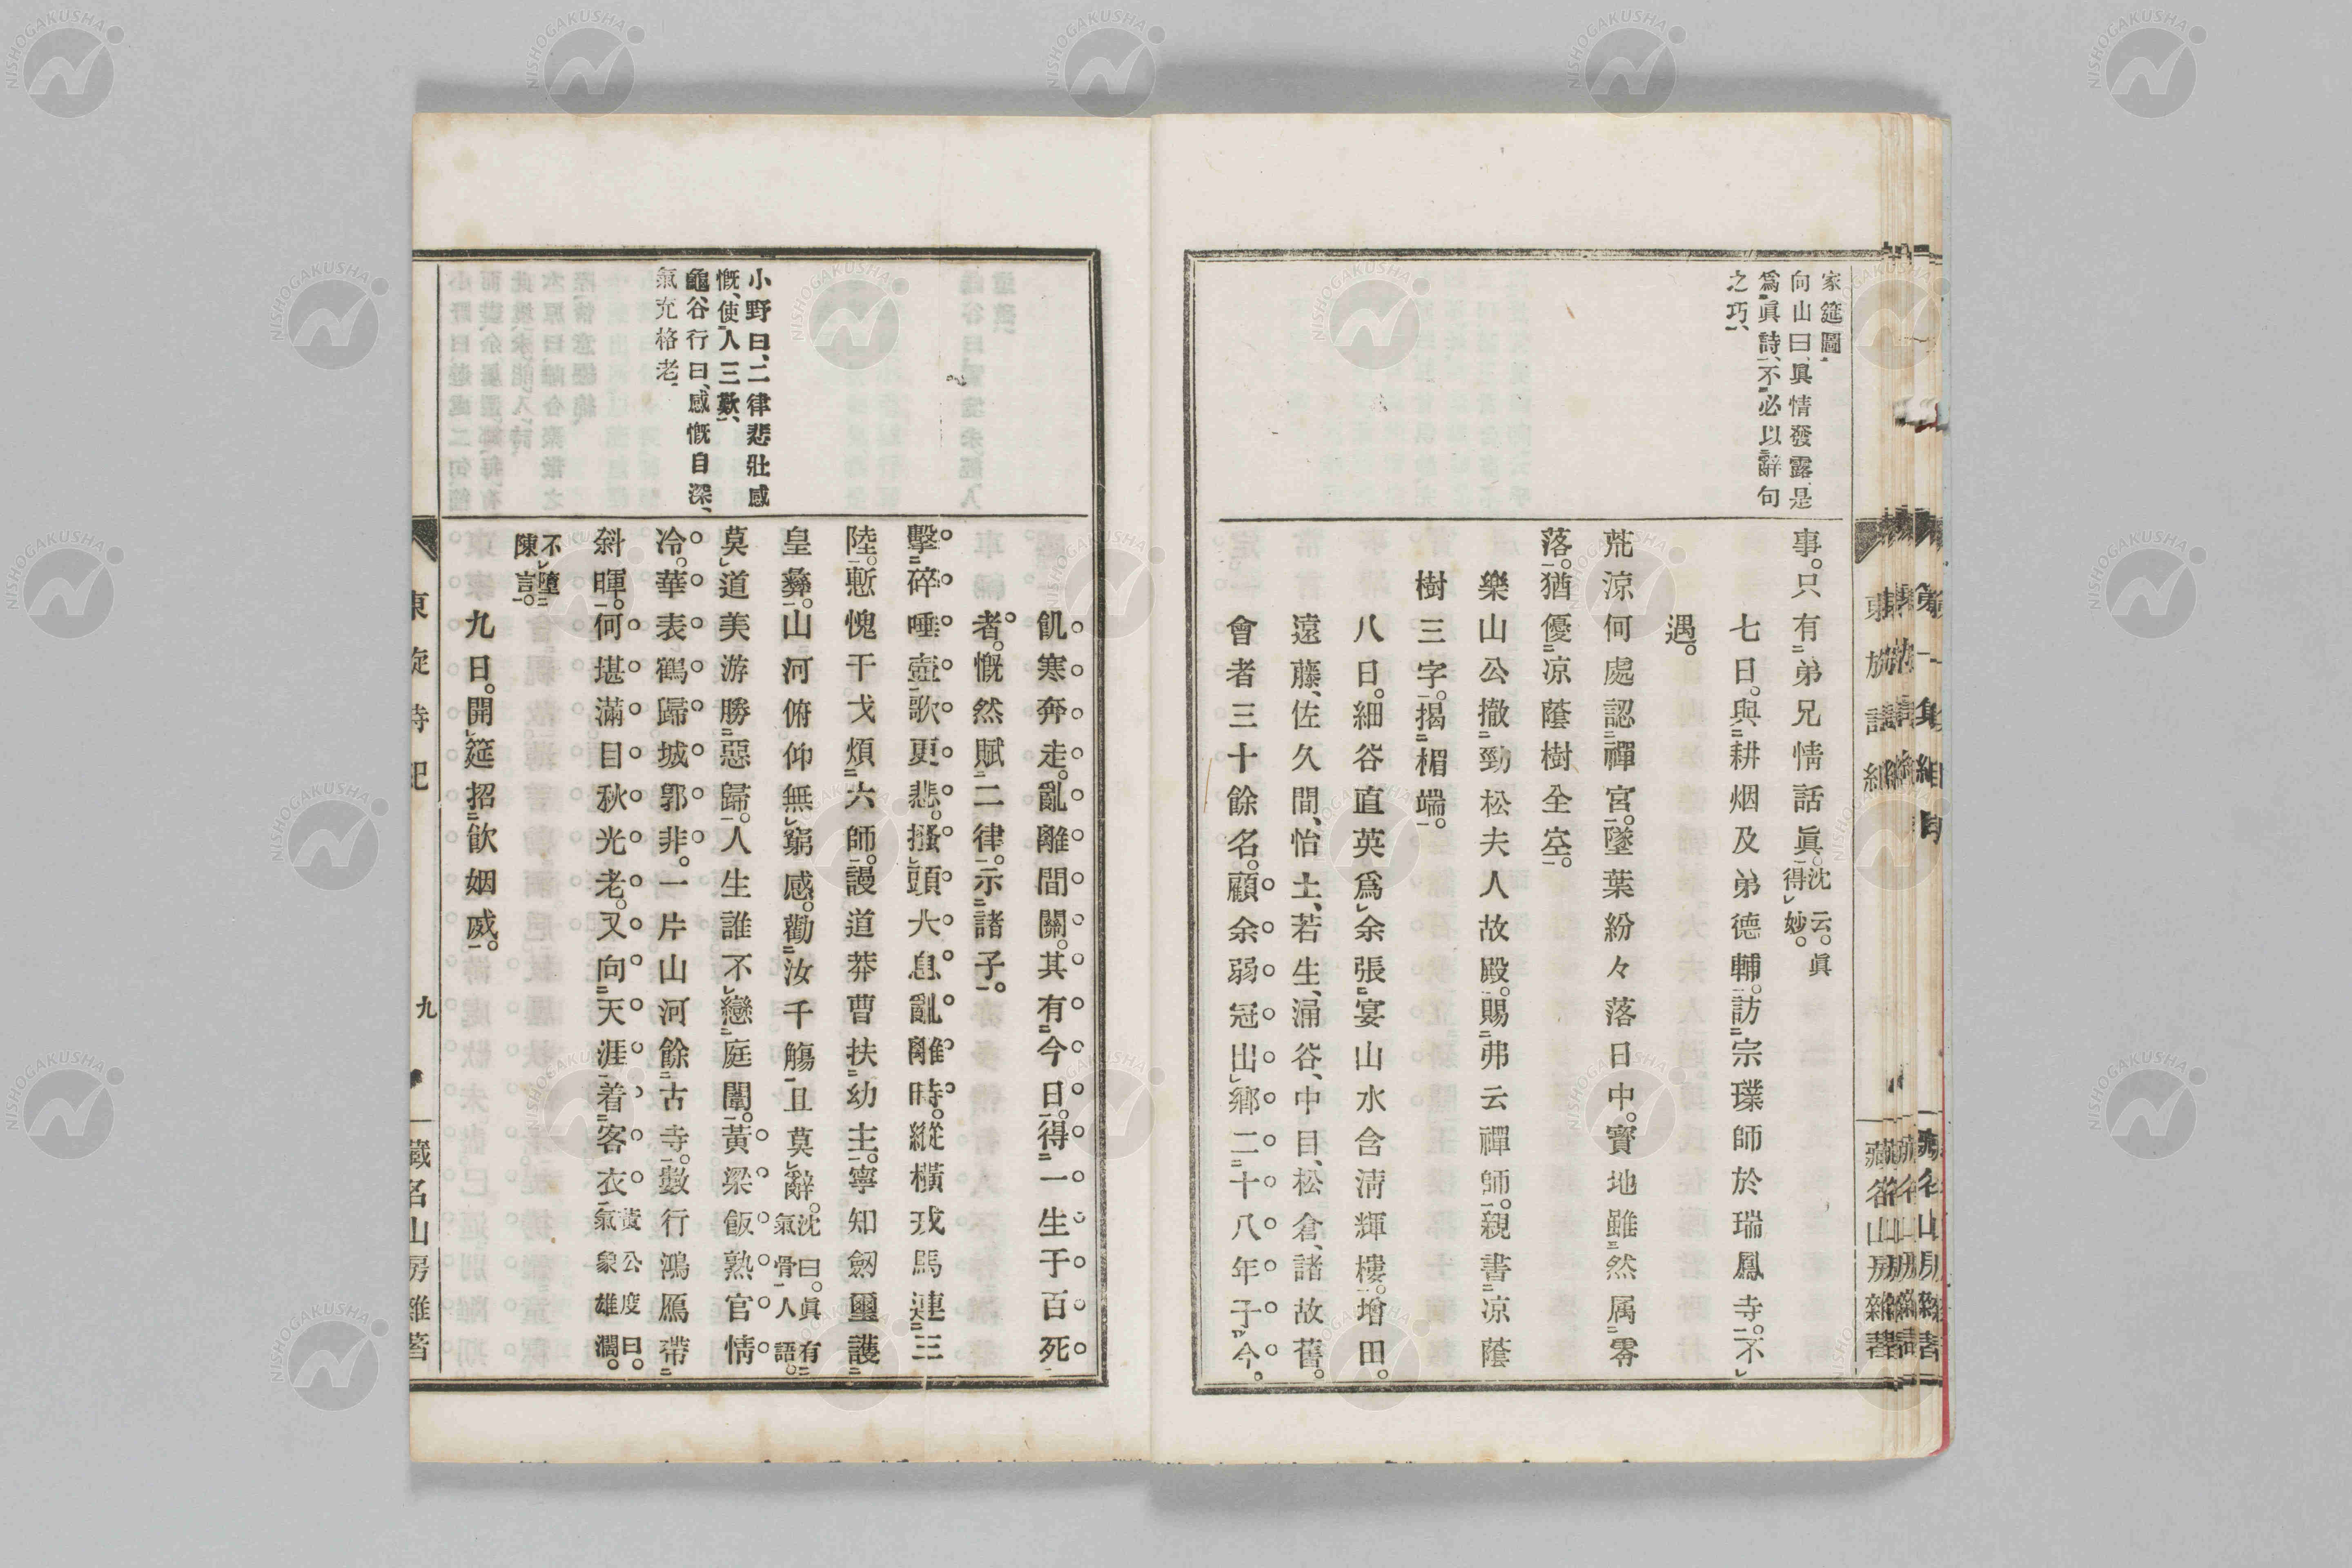 家筵圖
向山曰、眞情發露、是
爲眞詩、不必以辭句
之巧、
事。只有弟兄情話眞。沈云。眞得妙。
七日。與耕烟及弟德輔。訪宗璞師於瑞鳳寺。不
遇。
荒涼何處認禪宮。墜葉紛々落日中。寳地雖然属零
落。猶優凉蔭樹全空。
樂山公撤勁松夫人故殿。賜弗云禪師。親書凉蔭
樹三字。揭楣端。
八日。細谷直英爲余張宴山水含淸輝樓。增田。
遠藤、佐久間、怡土、若生、涌谷、中目、松倉、諸故舊。
會者三十餘名。顧余弱冠出鄕二十八年于今。
小野曰、二律悲壯感
慨、使人三歎、
龜谷行曰、感慨自深、
氣充格老、
飢寒奔走。亂離間關。其有今日。得一生于百死
者。慨然賦二律。示諸子。
擊碎唾壺歌更悲。搔頭大息亂離時。縱橫戎馬連三
陸。慙愧干戈煩六師。謾道莽曹扶幼主。寧知劒璽護
皇彜。山河俯仰無窮感。勸汝千觴且莫辭。沈曰。眞有氣骨人語。
莫道美游勝惡歸。人生誰不戀庭闈。黃粱飯熟官情
冷。華表鶴歸城郭非。一片山河餘古寺。數行鴻鴈帶
斜暉。何堪滿目秋光老。又向天涯着客衣。黃公度曰。氣象雄濶。
不墮陳言。
九日。開筵招飮姻戚。
東旋詩紀
九
藏名山房雜著